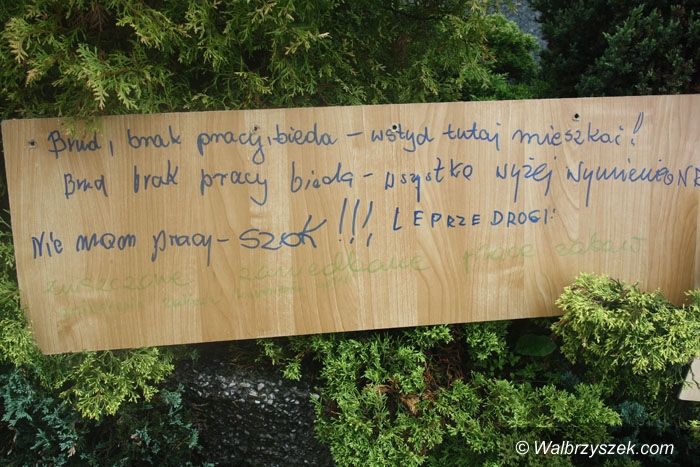 Brud, brak pracy, bieda - wstyd tutaj mieszkać!
Brud brak pracy bieda - wszystko wyżej wymienione
Nie mam pracy - SZOK!!! LEPRZE DROGI!
zniszczone zaniedbane place zabaw
© Walbrzyszek.com